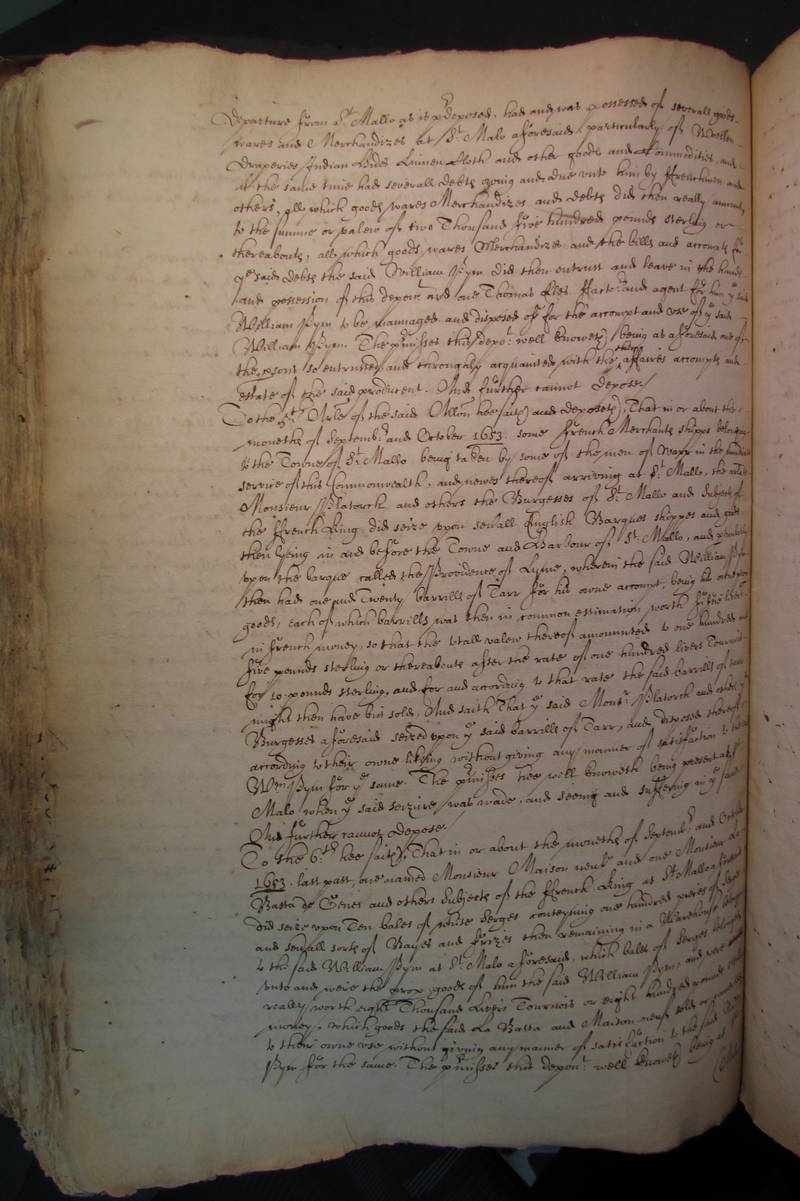 Departure from St. Mallo as is predeposed, had and was possessed of severall goods
wares and Merchandizes at St. Malo aforesaid, particularly of Wollen
Draperies Indian hides Linnen Cloth and other goods and Commodities, and
at the same time had severall debts oweing and due unto him by Frenchmen and
others, all which goods wares Merchandizes and debts did then really amount
to the summe or valew of two Thousand five hundred pounds sterling or
thereabouts, all which goods, wares Merchandizes and the bills and accompts for
ye said debts the said William Pym did then entrust and leave in the hands
and possession of this deponent and one Thomas factor and agent for him ye said
William Pym to be mannaged and disposed of for the accompt and use of ye said
William Pym. The premisses this depot. well knoweth being as aforesaid one of
the persons so entrusted and throroughly acquainted with the affaires accompts and
estate of the said producent. And further cannot depose./
To the 5th Arle of the said Allon hee saith and deposeth, That in or about the
moneths of Septembr. and October 1653. some French Merchants shipps belonging
to the Towne of St. Mallo being taken by some of the men of Warr in the
service of this Commonwealth, and newes thereof arriving at St. Mallo, the
Monsieur Platorck and others the Burgesses of St. Mallo and Subjects of
the French King did seize upon severall English Barques shippes and goods
then lyeing in and before the Towne and Harbour of St. Mallo, and
upon the barque called the Providence of Lyme, wherein the said William Pym
then had one and Twenty barrills of Tarr for his owne accompt, being his
goods, each of which barrills was then in common estimation worth
in french money, so that the totall valew thereof amounted to one hundred and
five pounds sterling or thereabouts after the rate of one hundred livres Tournois
for 10 pounds sterling, and for and according to that rate the said barrills of tarr
might then have bin sold. And saith That ye said Monsr. Platorck and other ye
Burgesses aforesaid seized upon ye said barrills of Tarr, and disposed thereof
according to their owne likeing without giving any manner of satisfaction to
Wm. Pym for ye same. The premisses hee well knoweth being present at St.
Malo when ye said seizure was made, and seeing and suffering in ye same
And further cannot depose.
To the 6th hee saith, That in or about the moneths of Septembr. and
1653. last past, one named Monsieur Maison neufe and one Monsieur La
Basta de Genes and others Subjects of the French King at St. Mallo
did seize upon Ten bales of white Serges conteyning one hundred peeces of
and severall sorts of Bayes and frizes then remaining in a Warehouse
to the said William Pym at St. Malo aforesaid, which bales of Serges
unto and were the proper goods of him the said William Pym, and were
really worth eight Thousand Livers Tournois or eight hundred pounds
money. which goods the said La Basta and Maison-neufe sold or
to their owne use without giveing any manner of satisfaction to the said
Pym for the same. The premisses this depont. well knoweth being at